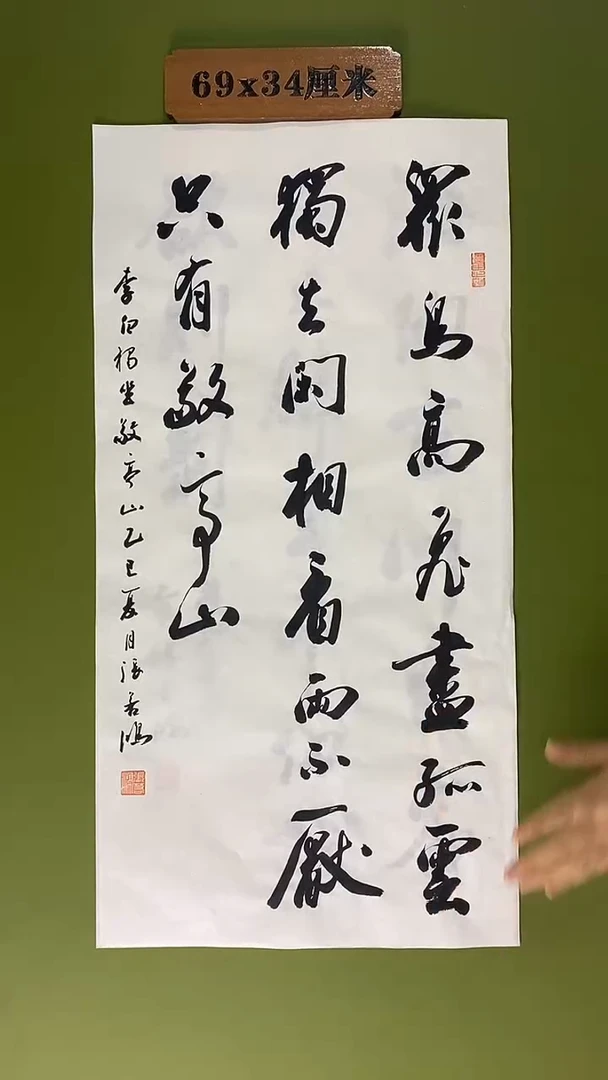 69x34厘米
眾鳥高飛盡孤雲
獨去閑相看兩不厭
只有敬亭山
李白獨坐敬亭山乙巳夏月張若鴻